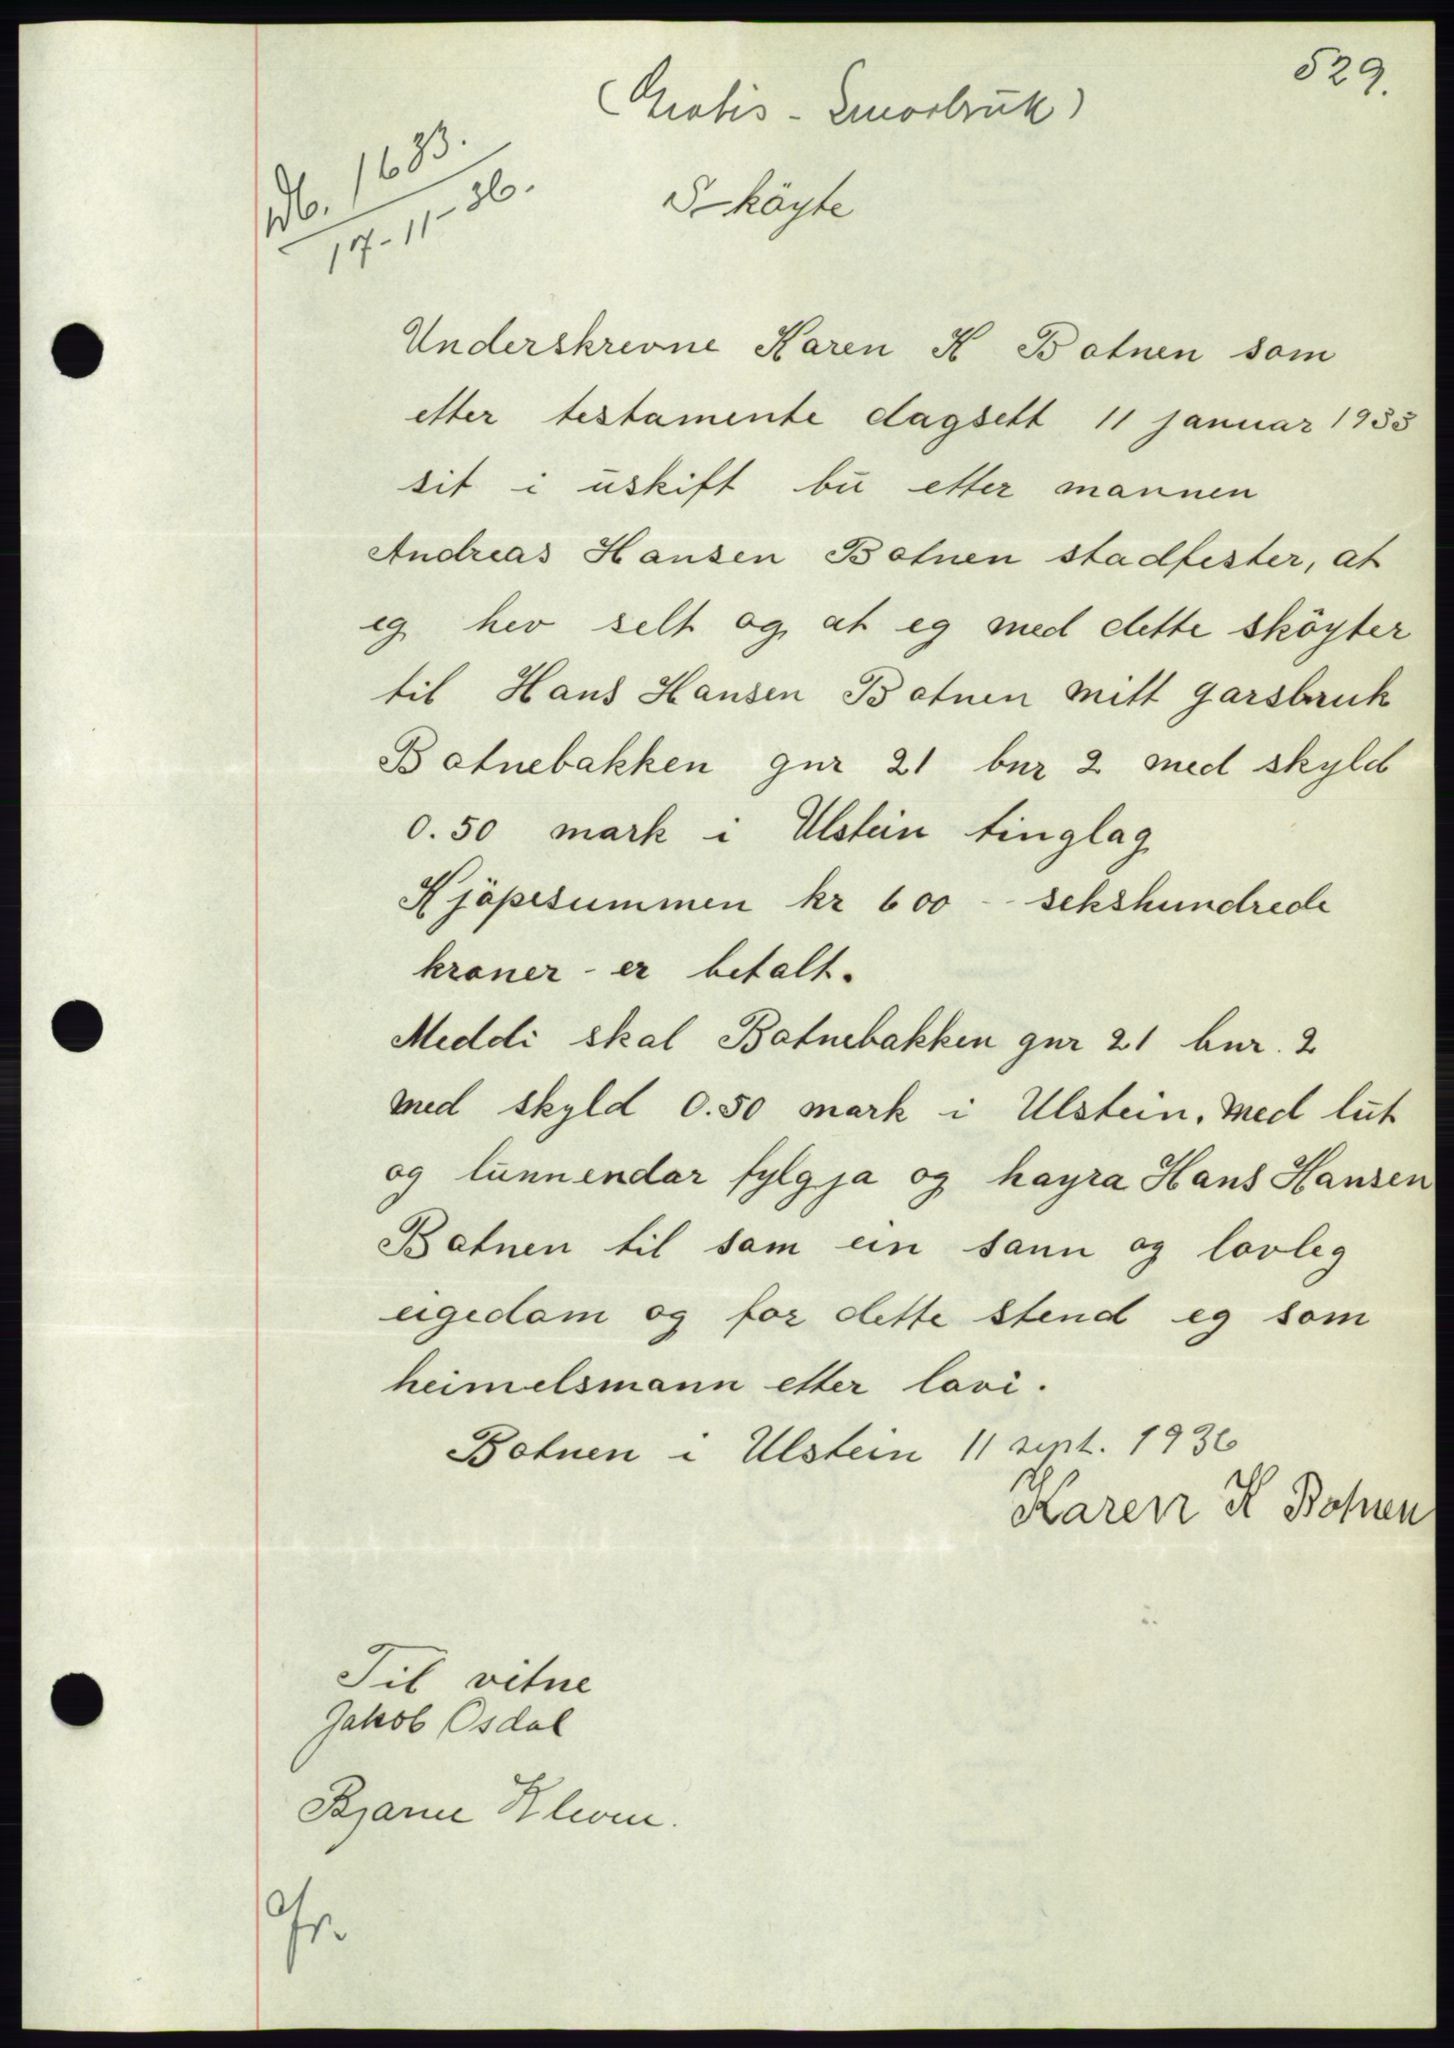 529.
(Gratis - Smårbruk)
Db. 1633.
17-11-36.
Sköyte
Underskrevne Karen K Botnen som
etter testamente dagsett 11 januar 1933
sit i uskift bu etter mannen
Andreas Hansen Botnen stadfester, at
eg hev selt og at eg med dette sköyter
til Hans Hansen Botnen mitt garsbruk
Botnebakken gnr 21 bnr 2 med skyld
0.50 mark i Ulstein tinglag
Kjöpesummen kr 600 -- sekshundrede
kroner - er betalt.
Meddi skal Botnebakken gnr 21 bnr. 2
med skyld 0.50 mark i Ulstein. med lut
og lunnendar fylgja og høyra Hans Hansen
Botnen til som ein sann og lovleg
eigedom og for dette stend eg som
heimelsmann etter lovi.
Botnen i Ulstein 11 sept. 1936
Karen K Botnen
Til vitne
Jakob Osdal
Bjarne Kleven.